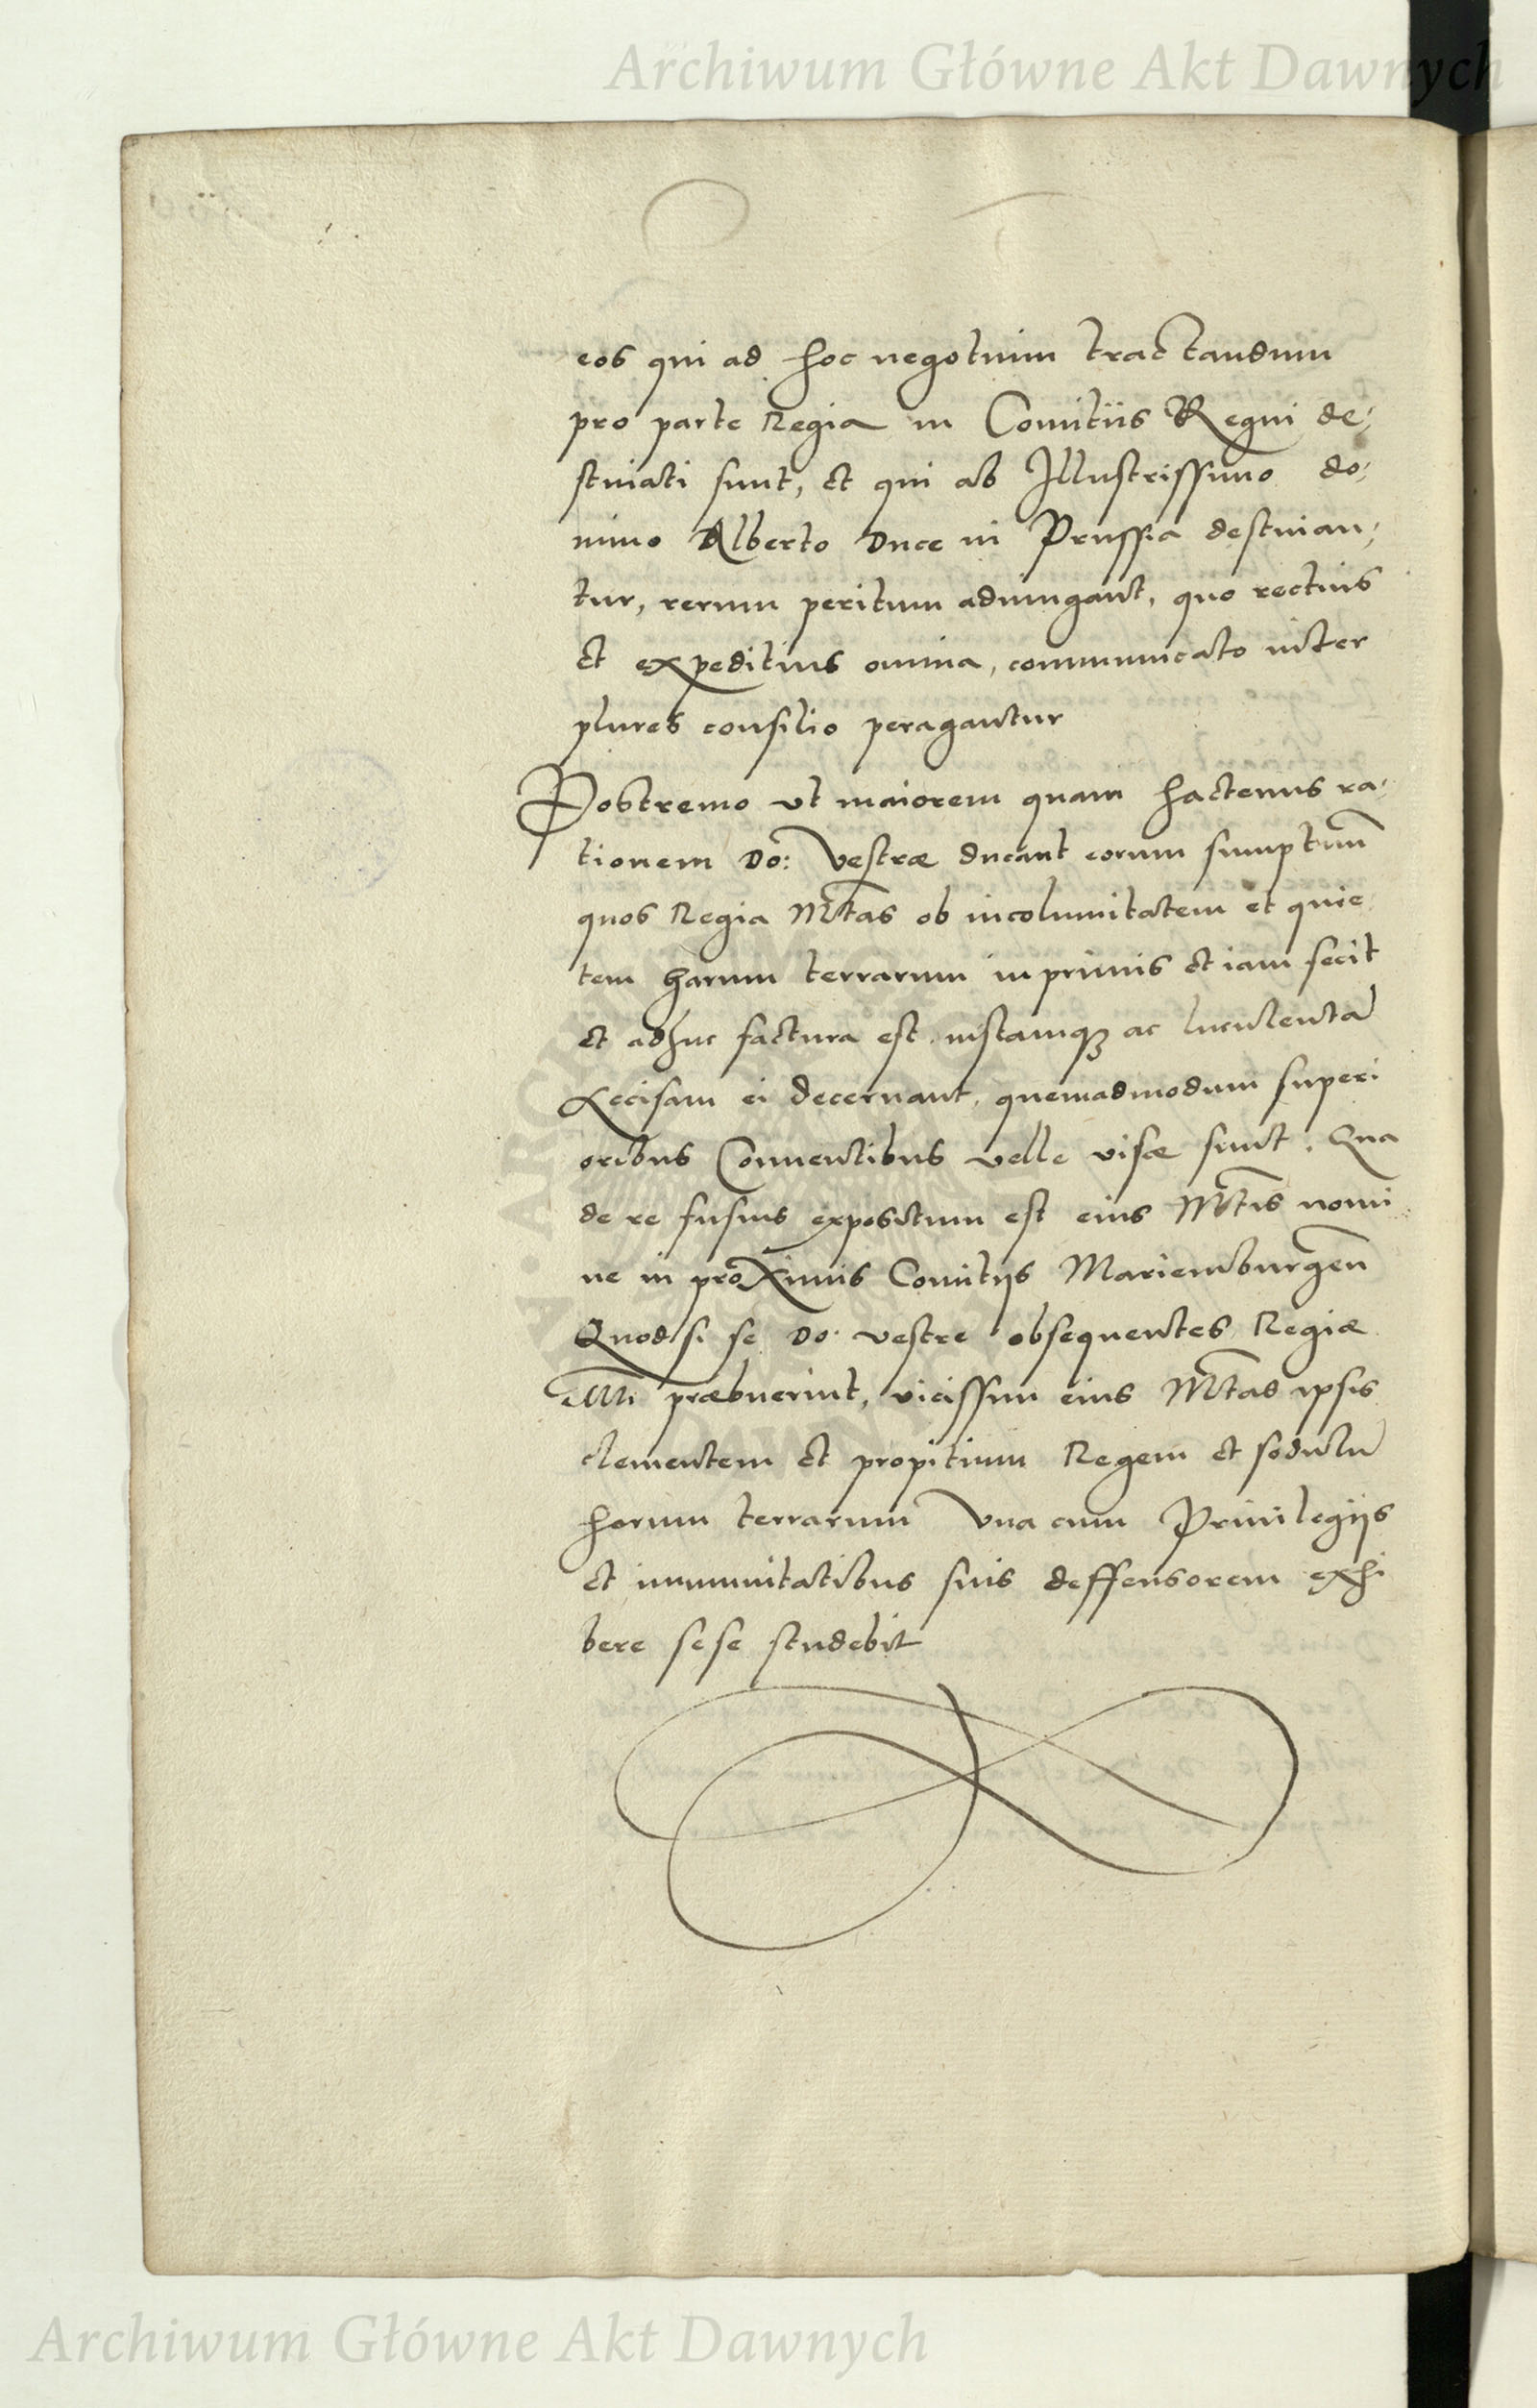 Archiwum Główne Akt Dawnych
eos qui ad hoc negotium tractandum
pro parte Regia in Comitiis Regni de-
stinati sunt, et qui ab Illustrissimo do-
mino Alberto Duce in Prussia destinan-
tur, rerum peritum adiungant, quo rectius
et expeditius omnia, communicato inter
plures consilio peragantur
Postremo ut maiorem quam hactenus ra-
tionem Do: Vestræ ducant eorum sumptuum
quos Regia Mtas ob incolumitatem et quie-
tem harum terrarum in primis et iam fecit
et adhuc factura est iustamq; ac luculentā
Accisam ei decernant, quemadmodum superi
oribus Conventibus velle visæ sunt. Qua
de re fusius expositum est eius Mtis nomi
ne in proximis Comitijs Marienburgen̄
Quod si se Do: vestre obsequentes Regiæ
Mti præbuerint, vicissim eius Mtas ipsis
clementem et propitium Regem et sedulū
horum terrarum una cum Privilegijs
et immunitatibus suis deffensorem exhi
bere sese studebit
Archiwum Główne Akt Dawnych